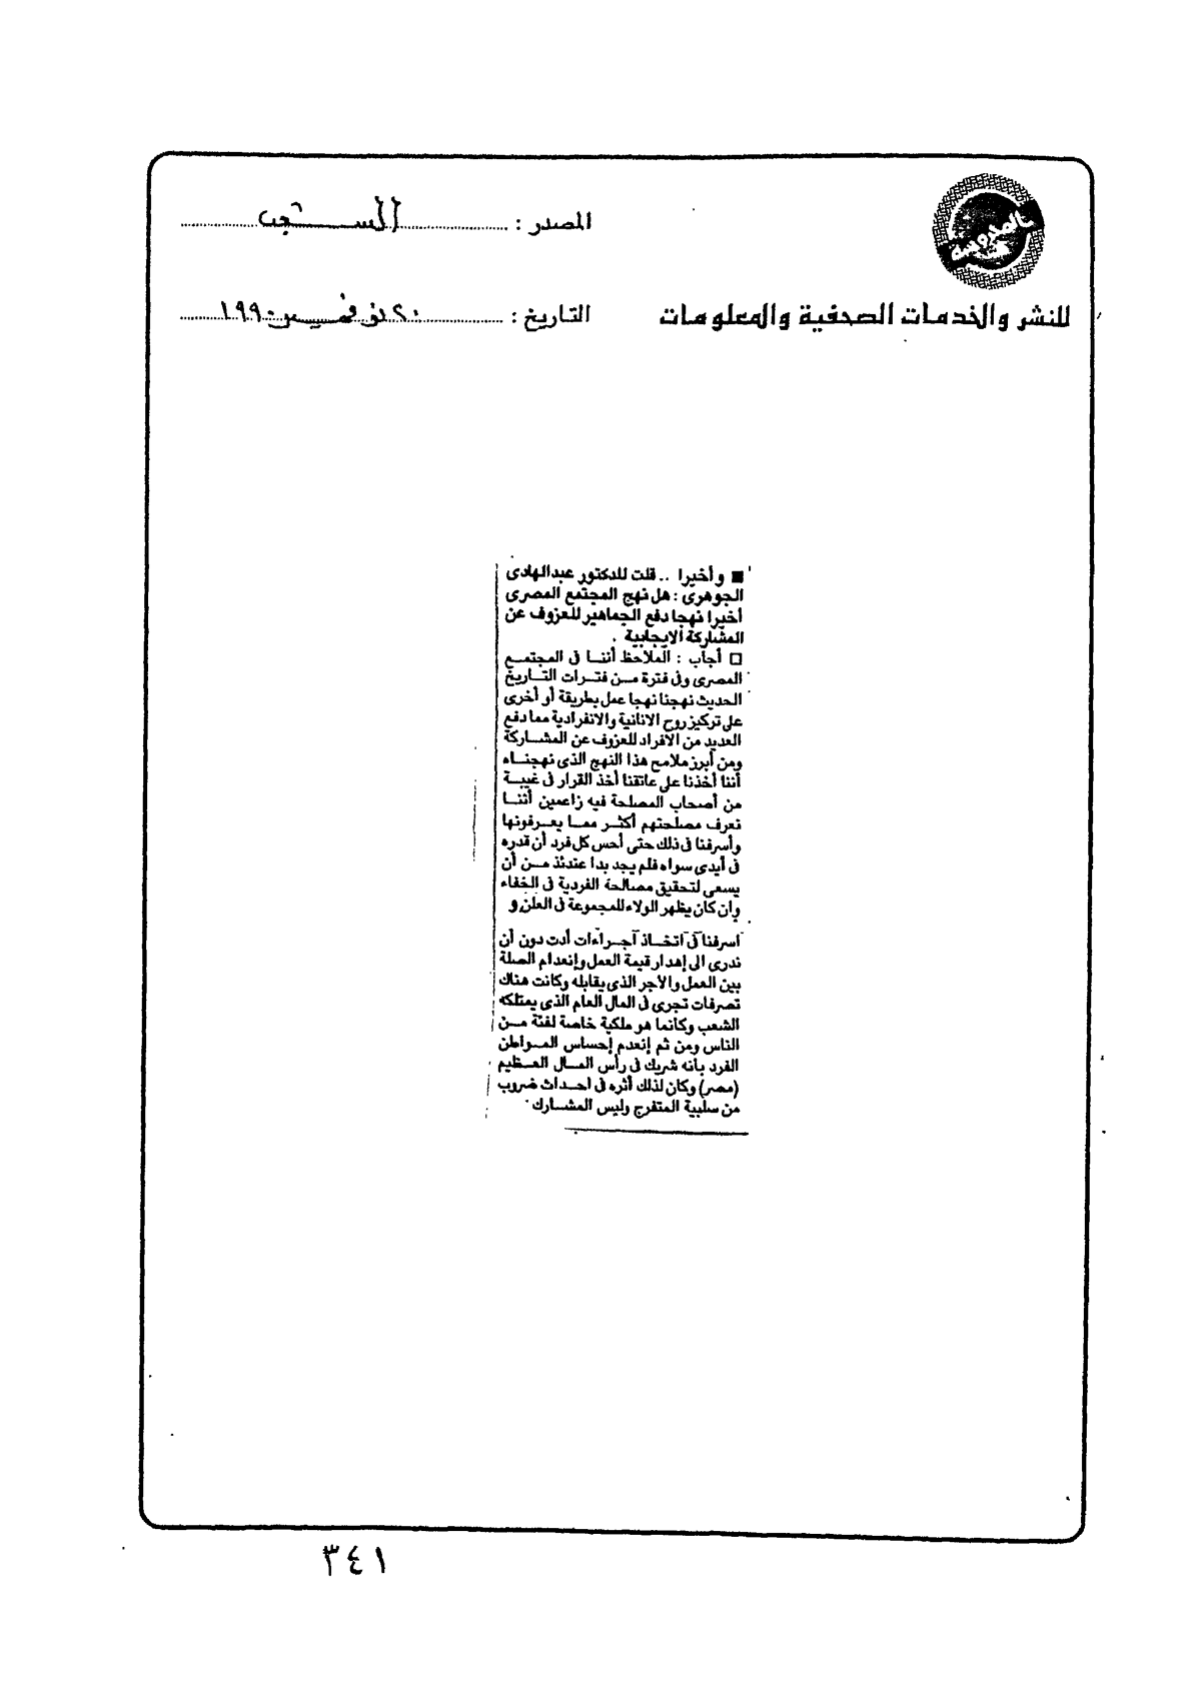 المحروسة
للنشر والخدمات الصحفية والمعلومات
المصدر :
التاريخ : ٢٠ نوفمبر ١٩٩٠
■ وأخيرا .. قلت للدكتور عبدالهادى
الجوهرى : هل نهج المجتمع المصرى
أخيرا نهجا دفع الجماهير للعزوف عن
المشاركة الايجابية .
□ أجاب : الملاحظ أننا فى المجتمع
المصرى وفى فترة من فترات التاريخ
الحديث نهجنا نهجا عمل بطريقة أو أخرى
على تركيز روح الانانية والانفرادية مما دفع
العديد من الافراد للعزوف عن المشاركة
ومن أبرز ملامح هذا النهج الذى نهجناه
أننا أخذنا على عاتقنا أخذ القرار فى غيبة
من أصحاب المصلحة فيه زاعمين أننا
نعرف مصلحتهم أكثر مما يعرفونها
وأسرفنا فى ذلك حتى أحس كل فرد أن قدره
فى أيدى سواه فلم يجد بدا عندئذ من أن
يسعى لتحقيق مصالحة الفردية فى الخفاء
وان كان يظهر الولاء للمجموعة فى العلن و
اسرفنا فى اتخاذ اجراءات أدت دون أن
ندرى الى إهدار قيمة العمل وإنعدام الصلة
بين العمل والأجر الذى يقابله وكانت هناك
تصرفات تجرى فى المال العام الذى يمتلكه
الشعب وكانما هو ملكية خاصة لفئة من
الناس ومن ثم إنعدم إحساس المواطن
الفرد بأنه شريك فى رأس المال العظيم
(مصر) وكان لذلك أثره فى احداث ضروب
من سلبية المتفرج وليس المشارك .
٣٤١